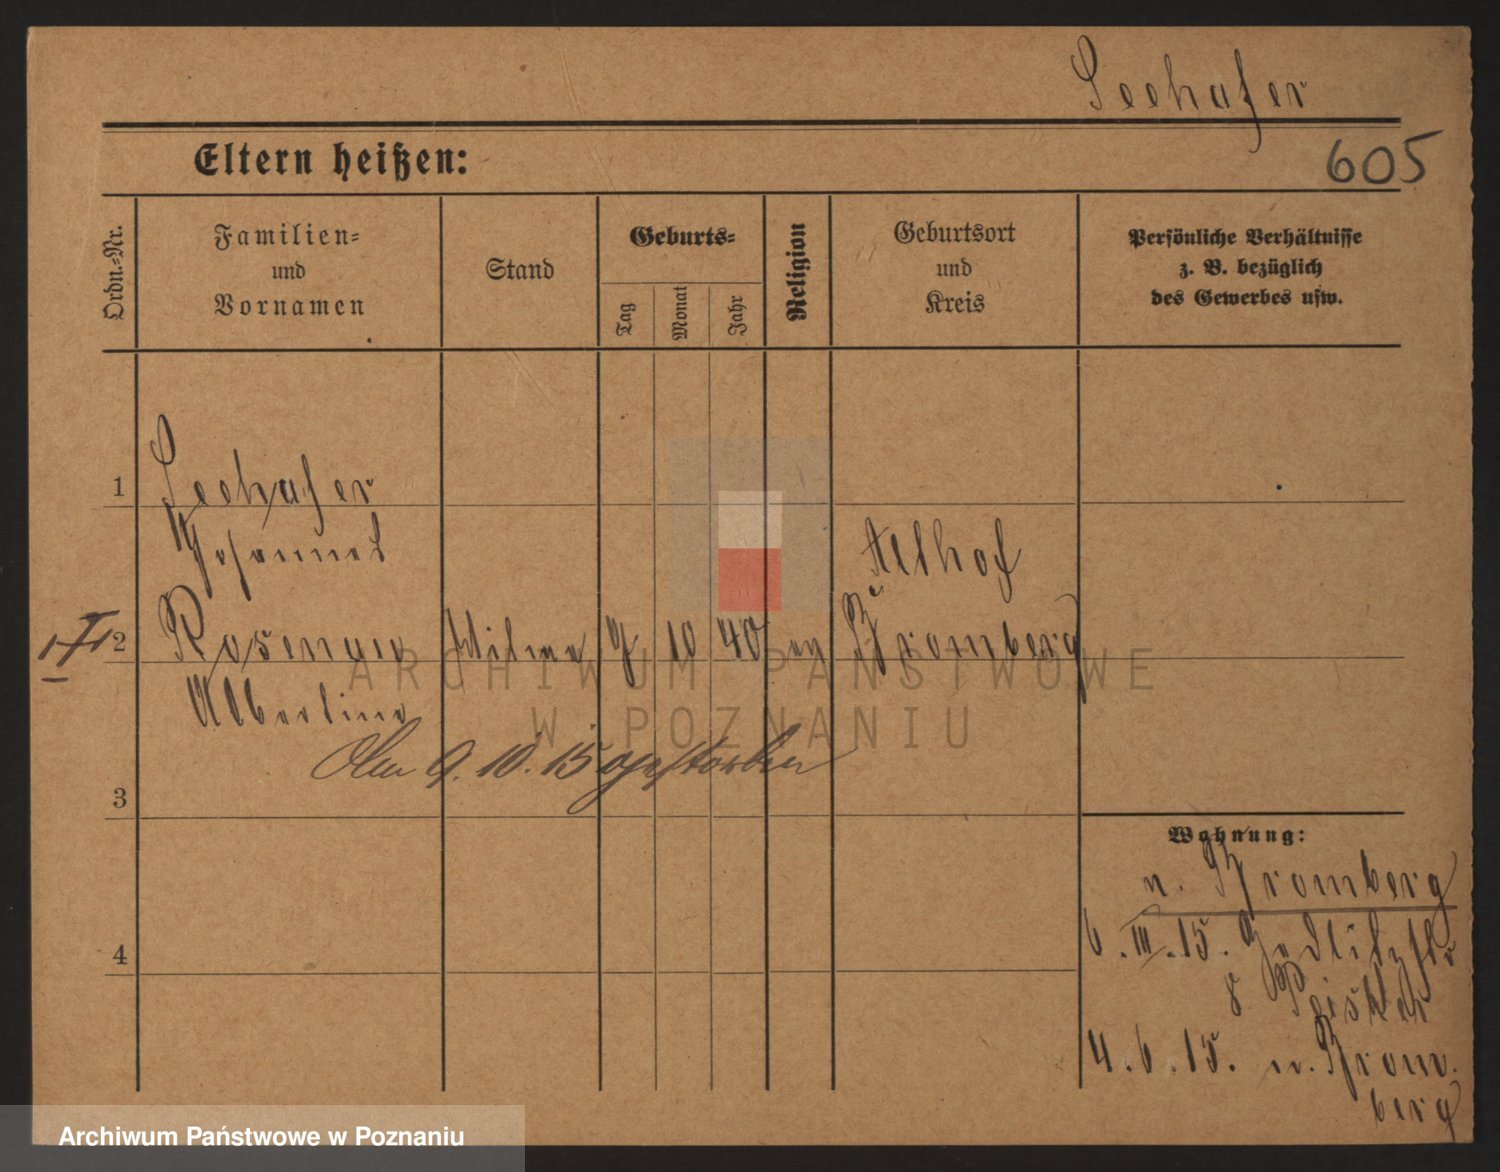 Seehafer
605
Eltern heißen:
Ordn.-Nr.
Familien-
und
Vornamen
Stand
Geburts-
Tag
Monat
Jahr
Religion
Geburtsort
und
Kreis
Persönliche Verhältnisse
z. B. bezüglich
des Gewerbes usw.
1
Seehafer
Johannes
Althof
2
Rosenau
Witwe
10
40
ev
Bromberg
Albertine
ARCHIWUM PAŃSTWOWE
W POZNANIU
9. 10. 15 gestorben
3
Wohnung:
n. Bromberg
6. III. 15.
8
4
4. 6. 15. n. Brom-
berg
Archiwum Państwowe w Poznaniu